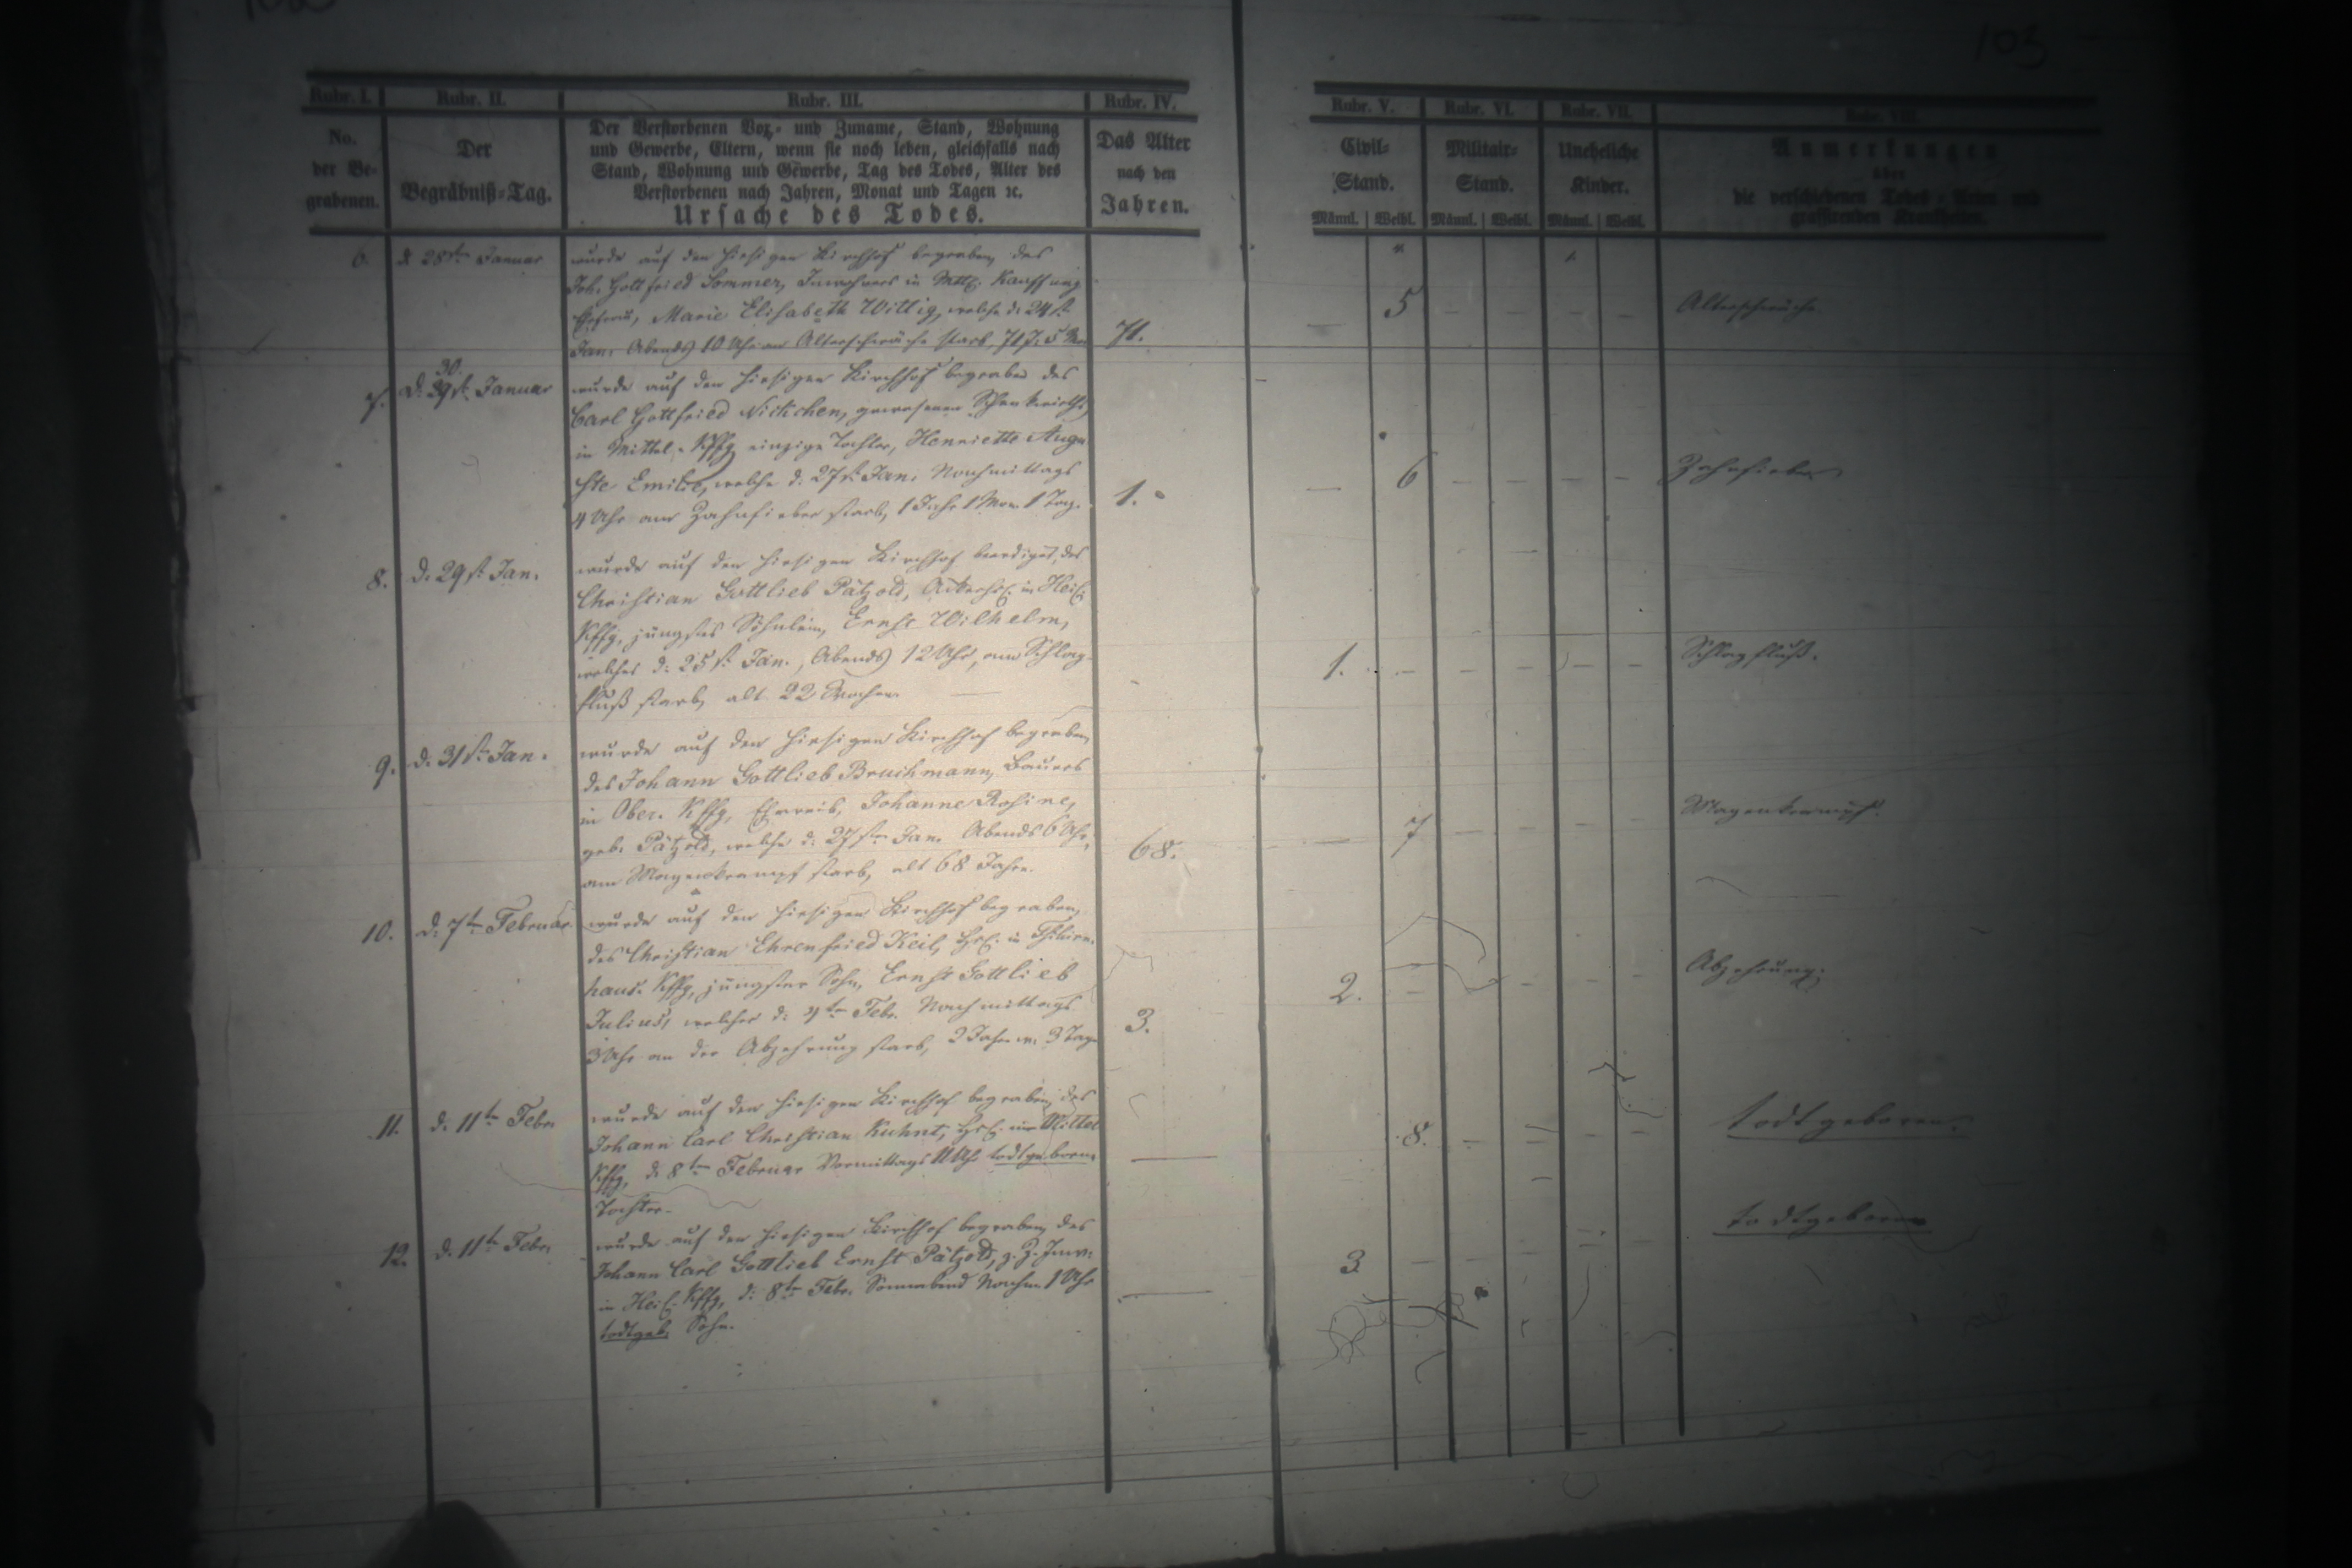 102
103
Rubr. I.
Rubr. II.
Rubr. III.
Rubr. IV.
Rubr. V.
Rubr. VI.
Rubr. VII.
Rubr. VIII.
No.
der Be-
grabenen.
Der
Begräbniß-Tag.
Der Verstorbenen Vor- und Zuname, Stand, Wohnung
und Gewerbe, Eltern, wenn sie noch leben, gleichfalls nach
Stand, Wohnung und Gewerbe, Tag des Todes, Alter des
Verstorbenen nach Jahren, Monat und Tagen ꝛc.
Ursache des Todes.
Das Alter
nach den
Jahren.
Civil-
Stand.
Männl. | Weibl.
Militair-
Stand.
Männl. | Weibl.
Uneheliche
Kinder.
Männl. | Weibl.
Anmerkungen
über
die verschiedenen Todes-Arten und
grassirenden Krankheiten.
6. d. 28st. Januar
wurde auf den hiesigen Kirchhof begraben, des
Joh. Gottfried Sommer, Inwohners in Mttl. Kauffung
Ehefrau, Marie Elisabeth Wittig, welche d. 24st.
Jan. Abends 10 Uhr an Altersschwäche starb, 71 J. 5 Mon.
71.
5
Altersschwäche.
7. d. 30. 29st. Januar
wurde auf den hiesigen Kirchhof begraben des
Carl Gottfried Nitschen, gewesenen Schenkwirths
in Mittel-Kffg einzige Tochter, Henriette Augu
ste Emilie, welche d. 27st. Jan. Nachmittags
4 Uhr am Zahnfieber starb, 1 Jahr 1 Mon. 1 Tag.
1.
6
Zahnfieber
8. d. 29st. Jan.
wurde auf den hiesigen Kirchhof beerdiget, des
Christian Gottlieb Pätzold, in Heil.
Kffg, jüngstes Söhnlein, Ernst Wilhelm,
welches d. 25st. Jan., Abends 12 Uhr, am Schlag-
fluß starb, alt 22 Wochen.
1.
Schlagfluß.
9. d. 31st. Jan.
wurde auf den hiesigen Kirchhof begraben,
des Johann Gottlieb Bruchmann, Bauers
in Ober. Kffg, Eheweib, Johanne Rosine,
geb. Pätzold, welche d. 27st. Jan. Abends 6 Uhr,
am Magenkrampf starb, alt 68 Jahre.
68.
7
Magenkrampf.
10. d. 7ten Februar
wurde auf den hiesigen Kirchhof begraben,
des Christian Ehrenfried Keil, in
haus. Kffg, jüngster Sohn, Ernst Gottlieb
Julius, welcher d. 4ten Febr. Nachmittags
3 Uhr an der Abzehrung starb, 2 Jahr w. 3 Tage
3.
2.
Abzehrung.
11. d. 11ten Febr.
wurde auf den hiesigen Kirchhof begraben, des
Johann Carl Christian Kuhnt, in Mittel
Kffg, d. 8ten Februar Vormittags 11 Uhr todtgeborne
Tochter.
8.
todtgeboren.
12. d. 11ten Febr.
wurde auf den hiesigen Kirchhof begraben, des
Johann Carl Gottlieb Ernst Pätzold, z. Z. Inw.
in Heil. Kffg, d. 8ten Febr. Sonnabend Nachm. 1 Uhr
todtgeb. Sohn.
3
todtgeboren